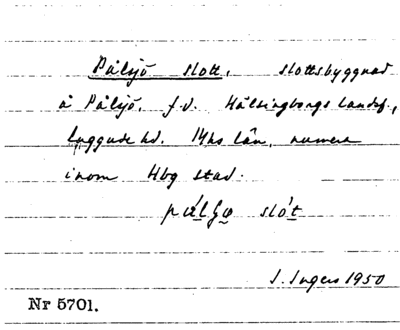 Pålsjö slott, slottsbyggnad
å Pålsjö, f.d. Hälsingborgs landsf.,
Luggude hd. Mhs län, numera
inom Hbg stad.
slo̱t
I. Ingers 1950
Nr 5701.